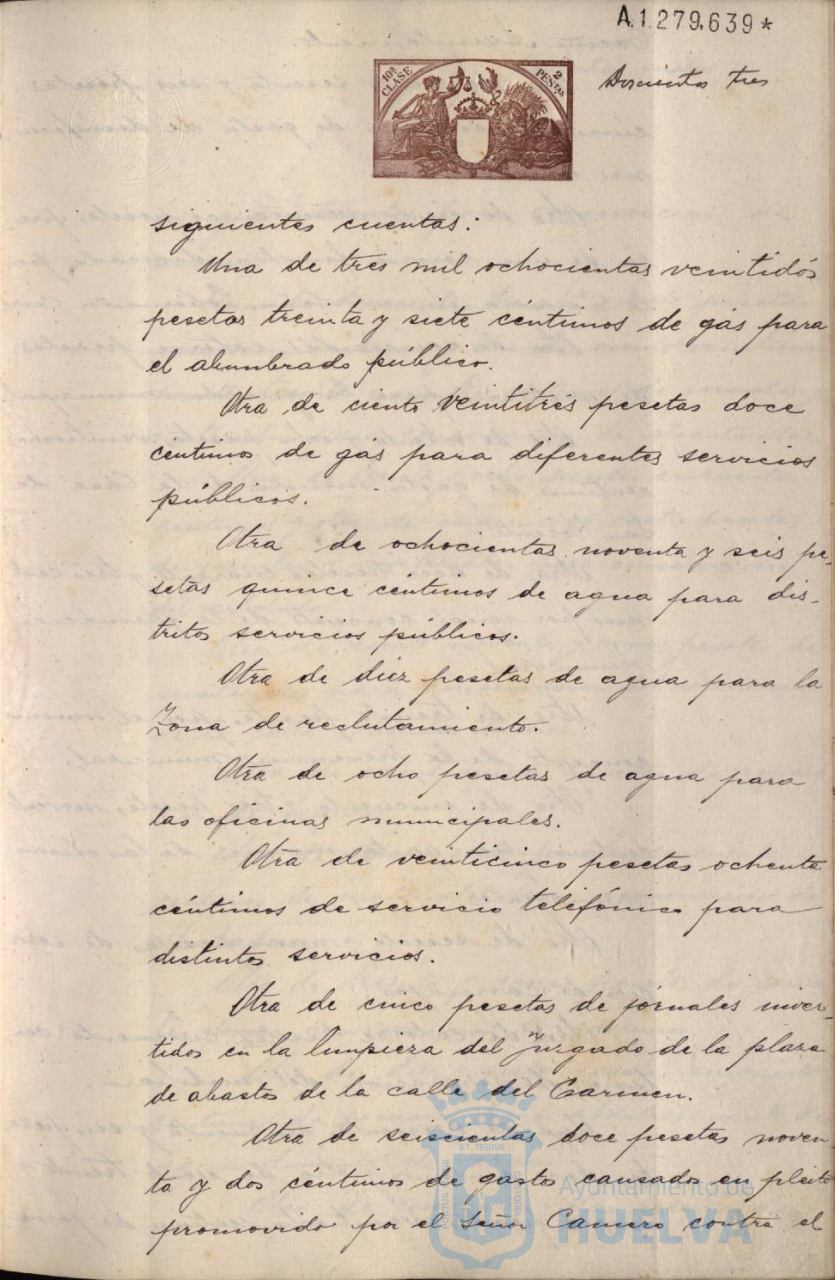 A.1.279.639*
10ª CLASE
2 PESTAS
Doscientos tres
siguientes cuentas:
Una de tres mil ochocientas veintidós
pesetas treinta y siete céntimos de gás para
el alumbrado público.
Otra de ciento veintitrés pesetas doce
céntimos de gás para diferentes servicios
públicos.
Otra de ochocientas noventa y seis pe-
setas quince céntimos de agua para dis-
tritos servicios públicos.
Otra de diez pesetas de agua para la
Zona de reclutamiento.
Otra de ocho pesetas de agua para
las oficinas municipales.
Otra de veinticinco pesetas ochenta
céntimos de servicio telefónico para
distintos servicios.
Otra de cinco pesetas de jornales inver-
tidos en la limpieza del Juzgado de la plaza
de abastos de la calle del Carmen.
Otra de seiscientas doce pesetas noven
ta y dos céntimos de gastos causados en pleito
promovido por el Señor Camero contra el
Ayuntamiento de
HUELVA